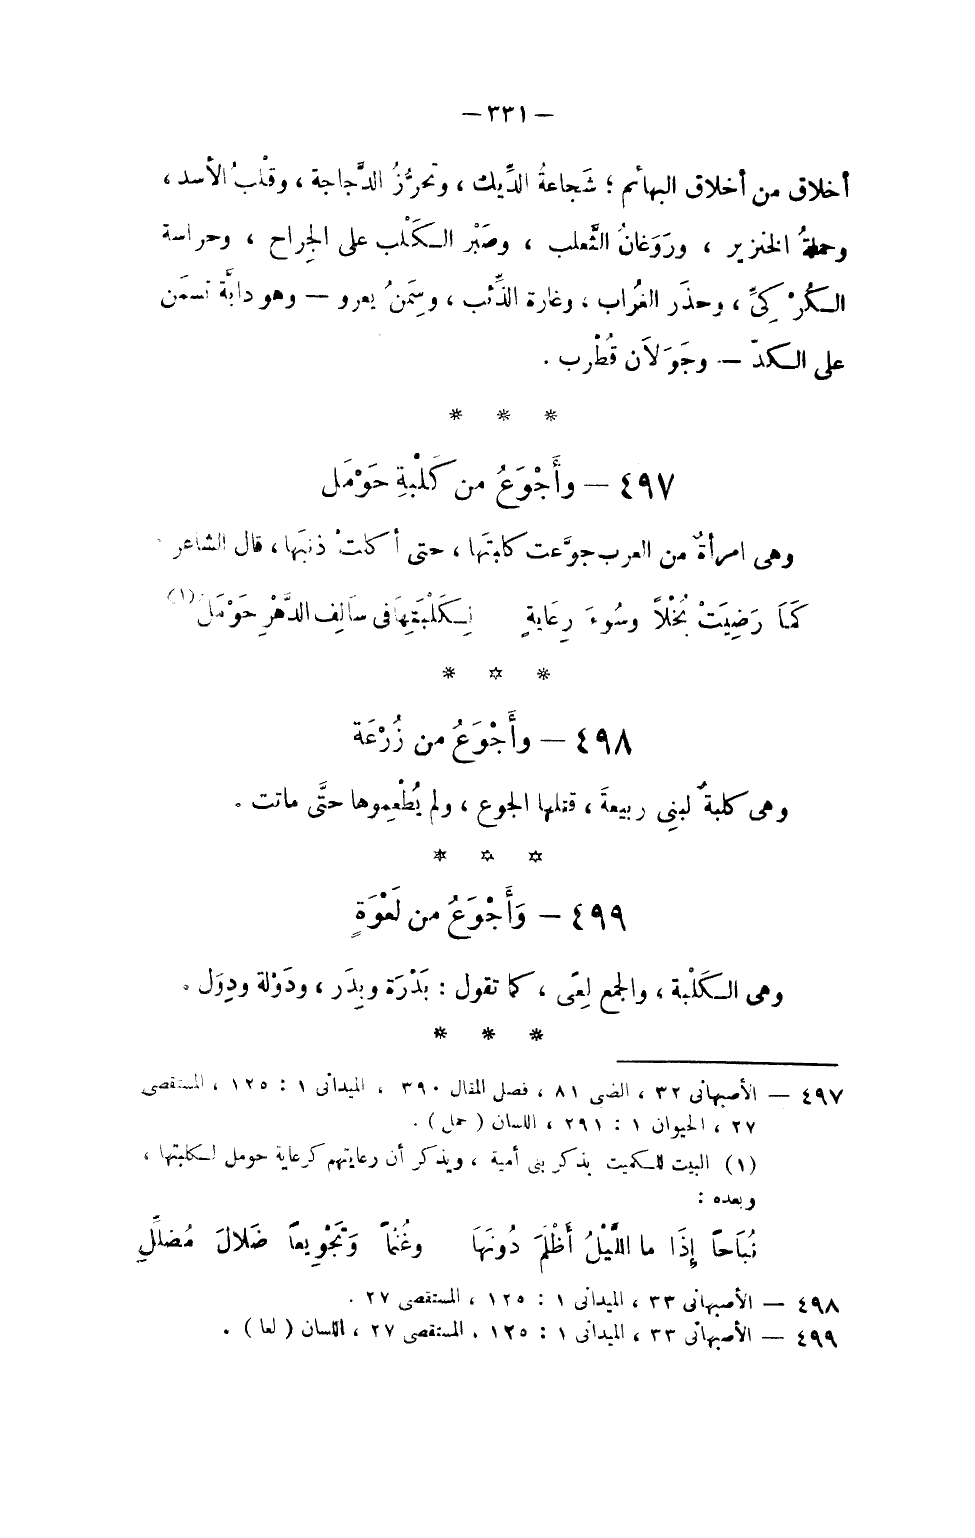 — ٣٣١ —
أخلاق من أخلاق البهائم ؛ شَجاعةُ الدِّيك ، وتحرُّزُ الدَّجاجة ، وقلْبُ الأسد ،
وحملةُ الخنزير ، ورَوَغانُ الثَّعلب ، وصَبْر الكَلْب على الجِراح ، وحراسة
الكُرْكِىِّ ، وحذَر الغُراب ، وغارة الذِّئب ، وسِمَنُ يعرو — وهو دابَّة تسمَن
على الكدّ — وجَوَلاَن قُطْرب .
* * *
٤٩٧ — وأَجْوَعُ من كَلْبةِ حَوْمَل
وهى امرأةٌ من العرب جوَّعت كلبتَها ، حتى أكلتْ ذنبَها ، قال الشاعر
كَمَا رَضِيَتْ بُخْلاً وسُوءَ رِعَايةٍ لِكَلْبَتِهَا فى سَالِف الدَّهْرِ حَوْمَلُ (١)
* * *
٤٩٨ — وأَجْوَعُ من زُرْعَة
وهى كلبةٌ لبنِى ربيعةَ ، قتلها الجوع ، ولم يُطْعِموها حتَّى ماتت .
* * *
٤٩٩ — وَأَجْوَعُ من لَعْوَةٍ
وهى الكَلْبة ، والجمع لِعًى ، كما تقول : بَدْرَة وبِدَر ، ودَوْلة ودِوَل .
* * *
٤٩٧ — الأصبهانى ٣٢ ، الضبى ٨١ ، فصل المقال ٣٩٠ ، الميدانى ١ : ١٢٥ ، المستقصى
٢٧ ، الحيوان ١ : ٢٩١ ، اللسان ( حمل ) .
(١) البيت للكميت يذكر بنى أمية ، ويذكر أن رعايتهم كرعاية حومل لكلبتها ،
وبعده :
نُبَاحًا إِذَا ما اللَّيْلُ أَظْلَمَ دُونَهَا وغُنْمًا وَتَجْوِيعًا ضَلالَ مُضَلِّلِ
٤٩٨ — الأصبهانى ٣٣ ، الميدانى ١ : ١٢٥ ، المستقصى ٢٧ .
٤٩٩ — الأصبهانى ٣٣ ، الميدانى ١ : ١٢٥ . المستقصى ٢٧ ، اللسان ( لعا ) .